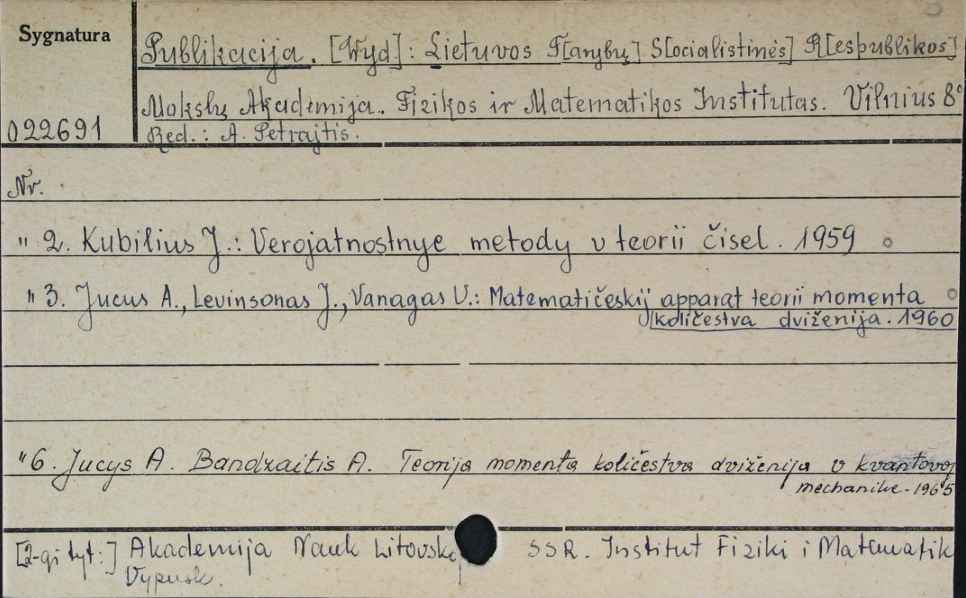 Sygnatura
Publikacija. [Wyd]: Lietuvos T[arybų] S[ocialistinės] R[espublikos]
Mokslų Akademija. Fizikos ir Matematikos Institutas. Vilnius 8°
022691
Red.: A. Petrajtis.
Nr.
" 2. Kubilius J.: Verojatnostnye metody v teorii čisel. 1959
" 3. Jucus A., Levinsonas J., Vanagas V.: Matematičeskij apparat teorii momenta
količestva dviženija. 1960
" 6. Jucys A. Bandzaitis A. Teorija momenta količestva dviženija v kvantovoj
mechanike. 1965
[2-gi tyt:] Akademija Nauk Litovskoj SSR. Institut Fiziki i Matematik
Vypusk.